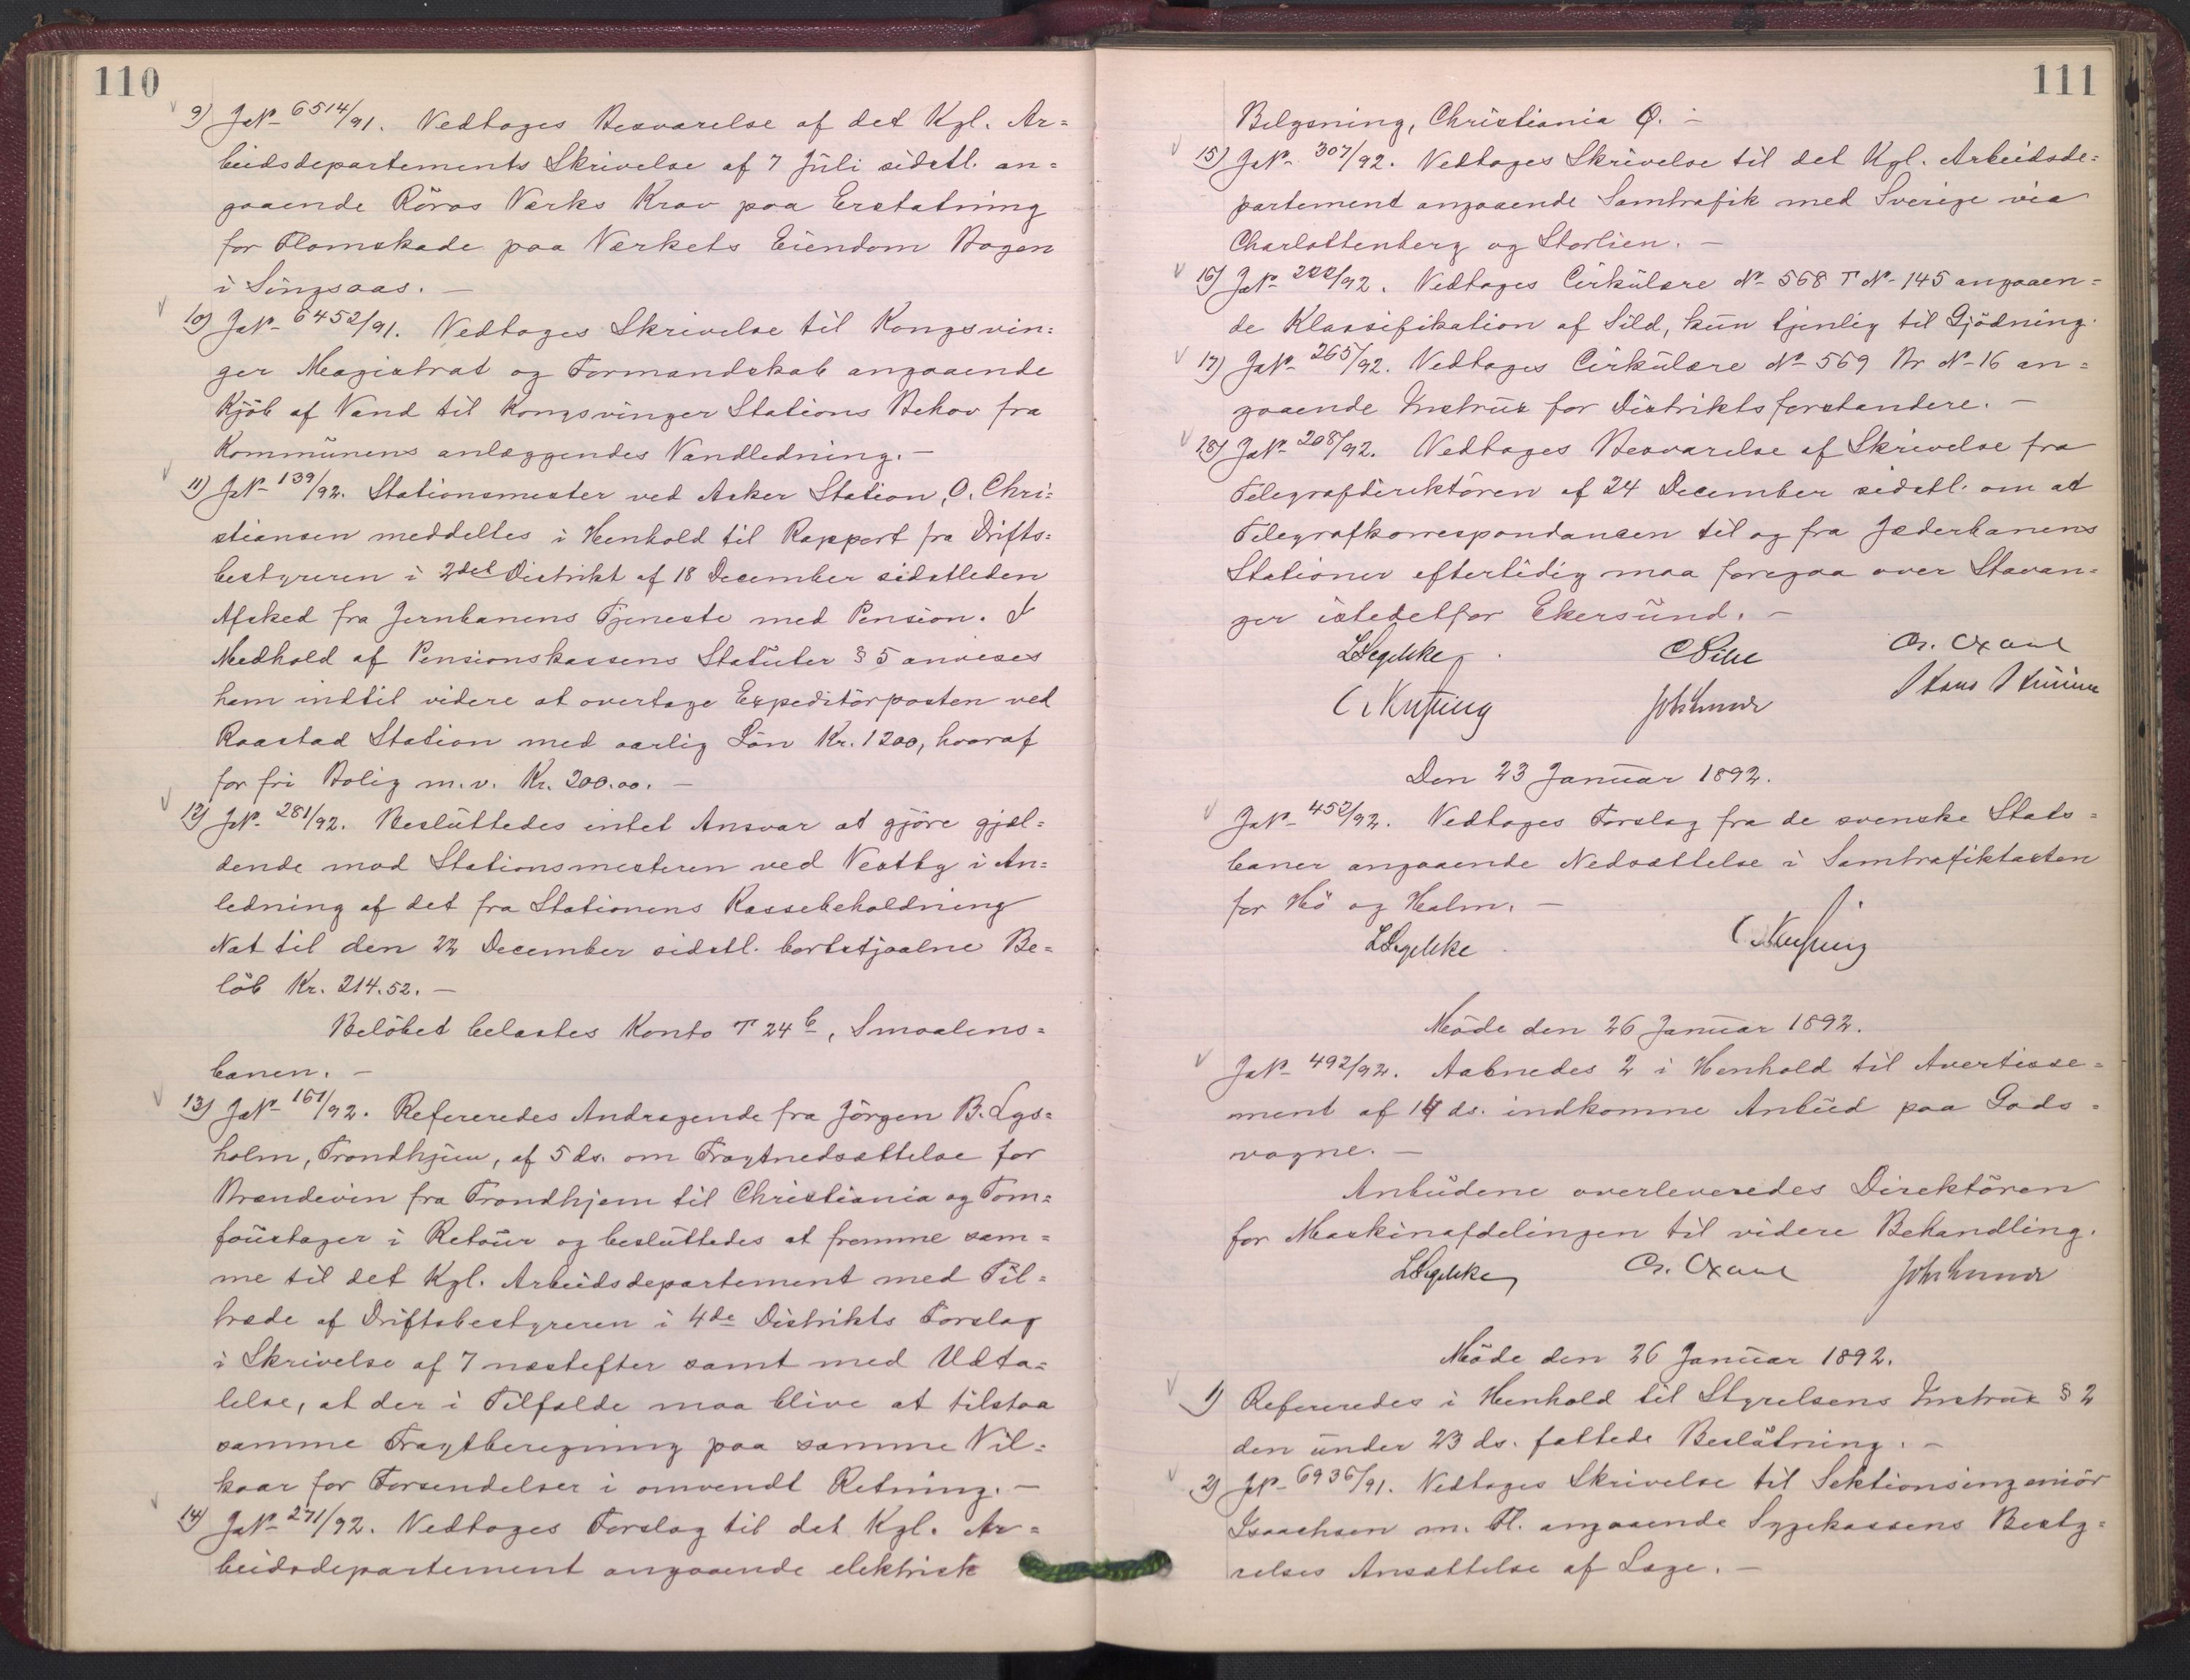 110
9) JN- 6514/91. Vedtoges Besvarelse af det Kgl. Ar=
beidsdepartements Skrivelse af 7 Juli sidstl. an=
gaaende Röros Værks Krav paa Erstatning
for Flomskade paa Værkets Eiendom Bogen
i Singsaas. —
10) JN- 6452/91. Vedtoges Skrivelse til Kongsvin:
ger Magistrat og Formandskab angaaende
Kjöb af Vand til Kongsvinger Stations Behov fra
Kommunens anlæggendes Vandledning. —
11) JN- 139/92. Stationsmester ved Asker Station, O. Chri=
stiansen meddeltes i Henhold til Rapport fra Drifts=
bestyreren i 2det Distrikt af 18 December sidstleden
Afsked fra Jernbanens Tjeneste med Pension. I
Medhold af Pensionskassens Statuter § 5 anvises
ham indtil videre at overtage Expeditörposten ved
Raastad Station med aarlig Lön Kr. 1200, hvoraf
for fri Bolig m.v. Kr. 200.00. —
12) JN- 281/92. Besluttedes intet Ansvar at gjöre gjæl=
dende mod Stationsmesteren ved Vestby i An=
ledning af det fra Stationens Kassebeholdning
Nat til den 22 December sidstl. bortstjaalne Be=
löb Kr. 214.52. —
Belöbet belastes Konto T 24 b, Smaalens=
banen. —
13) JN- 161/92. Refereredes Andragende fra Jörgen B. Lys=
holm, Trondhjem, af 5 ds. om Fragtnedsættelse for
Brændevin fra Trondhjem til Christiania og Tom=
foustager i Retour og besluttedes at fremme sam=
me til det Kgl. Arbeidsdepartement med Til=
træde af Driftsbestyreren i 4de Distrikts Forslag
i Skrivelse af 7 næstefter samt med Udta=
lelse, at der i Tilfælde maa blive at tilstaa
samme Fragtberegning paa samme Vil=
kaar for Forsendelser i omvendt Retning. —
14) JN- 271/92. Vedtoges Forslag til det Kgl. Ar=
beidsdepartement angaaende elektrisk
111
Belysning, Christiania Ö. —
15) JN- 307/92. Vedtoges Skrivelse til det Kgl. Arbeidsde=
partement angaaende Samtrafik med Sverige via
Charlottenberg og Storlien. —
16) JN- 222/92. Vedtoges Cirkulære N- 568 T N- 145 angaaen=
de Klassifikation af Sild, kun tjenlig til Gjödning.
17) JN- 265/92. Vedtoges Cirkulære N- 569 Br N- 16 an=
gaaende Instrux for Distriktsforstandere. —
18) JN- 208/92. Vedtoges Besvarelse af Skrivelse fra
Telegrafdirektören af 24 December sidstl. om at
Telegrafkorrespondancen til og fra Jæderbanens
Stationer eftertidig maa foregaa over Stavan=
ger istedetfor Ekersund. —
LSegelcke CPihl
Den 23 Januar 1892.
JN- 452/92. Vedtoges Forslag fra de svenske Stats=
baner angaaende Nedsættelse i Samtrafiktaxten
for Hö og Halm. —
LSegelcke
Möde den 26 Januar 1892.
JN- 492/92. Aabnedes 2 i Henhold til Avertisse=
ment af 14 ds. indkomne Anbud paa Gods=
vogne. —
Anbudene overleveredes Direktören
for Maskinafdelingen til videre Behandling.
LSegelcke
Möde den 26 Januar 1892.
1) Refereredes i Henhold til Styrelsens Instrux § 2
den under 23 ds. fattede Beslutning. —
2) JN- 6936/91. Vedtoges Skrivelse til Sektionsingeniör
Isaachsen m. Fl. angaaende Sygekassens Besty=
relses Ansættelse af Læge. —